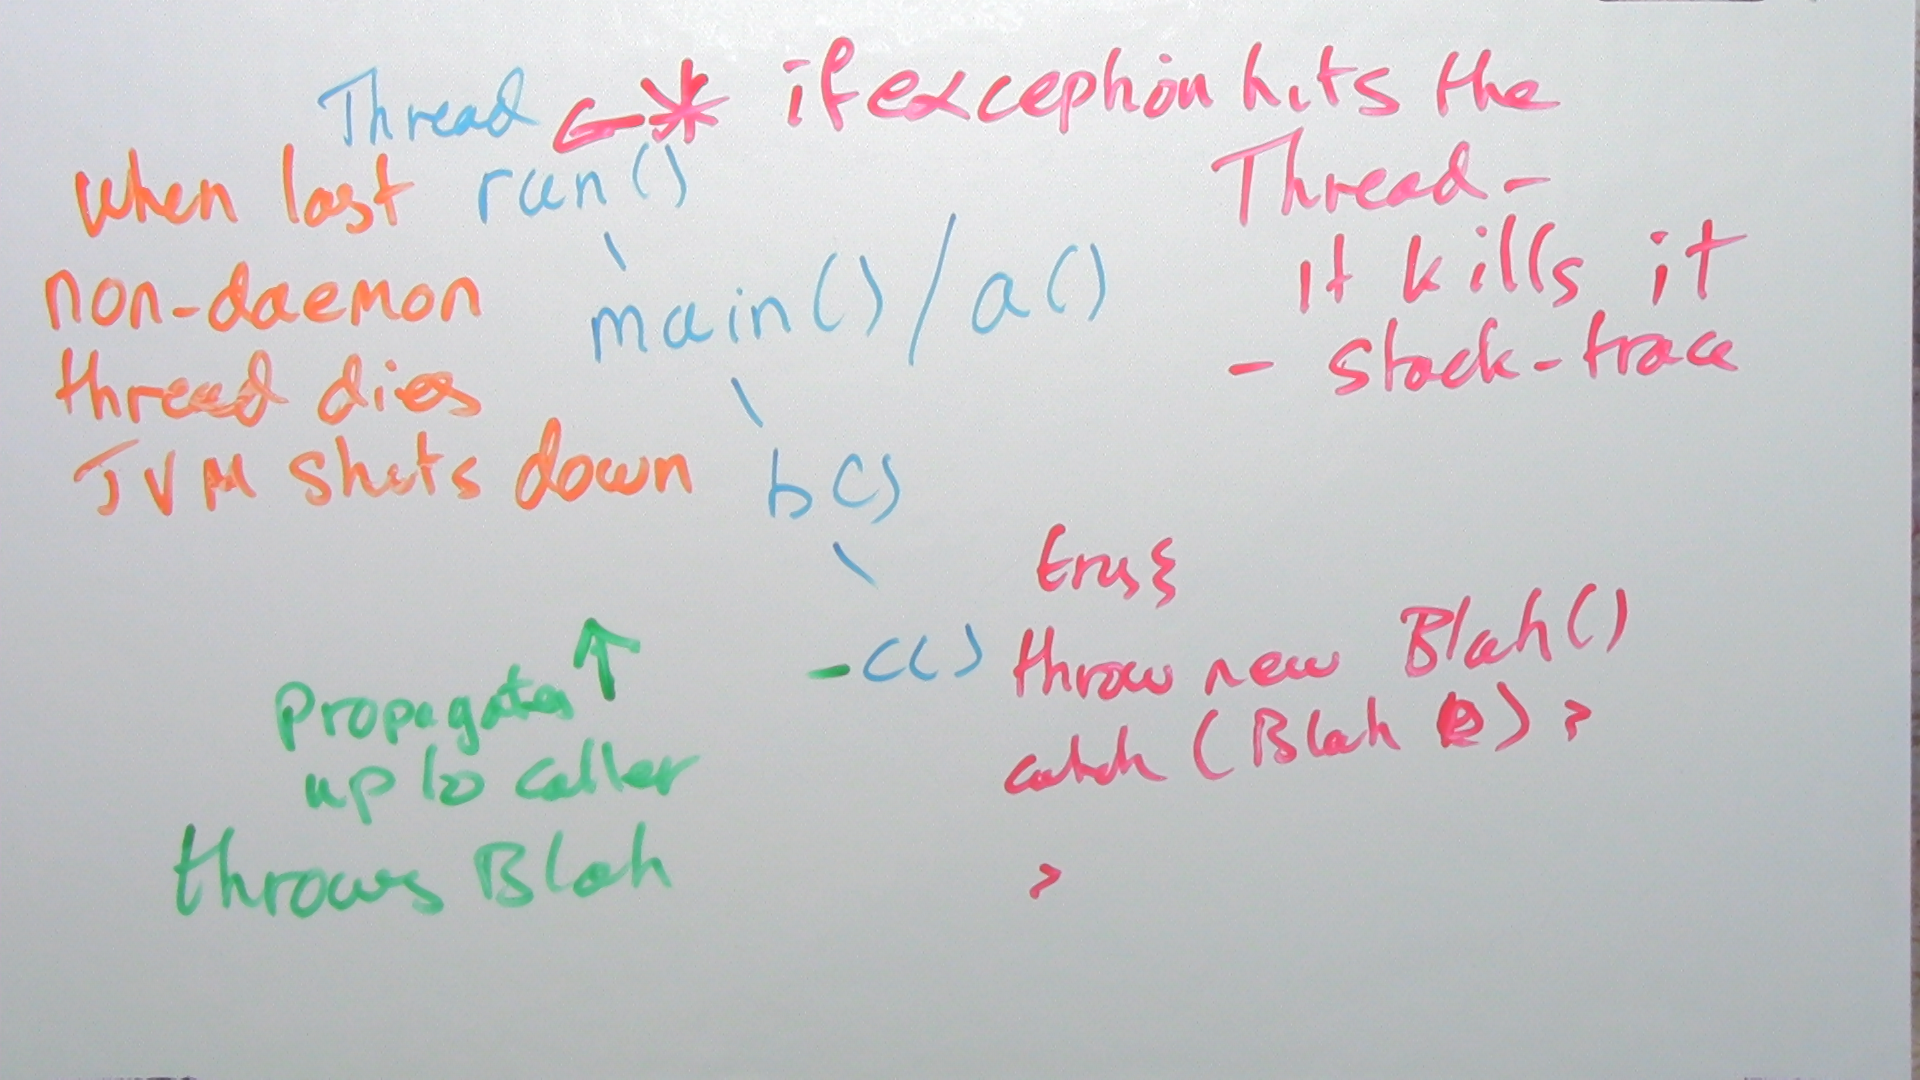 Thread ← * if exception hits the
Thread -
it kills it
- stack-trace
when last
non-daemon
thread dies
JVM shuts down
run()
main() / a()
b()
- c()
try {
throw new Blah()
catch (Blah e) }
}
propagates ↑
up to caller
throws Blah